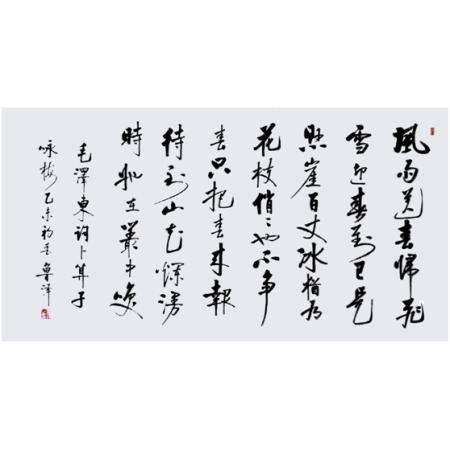 風雨送春歸飛
雪迎春到已是
懸崖百丈冰猶有
花枝俏〻也不争
春只把春来報
待到山花爛漫
時她在叢中笑
毛澤東詞卜算子
咏梅乙未初春魯